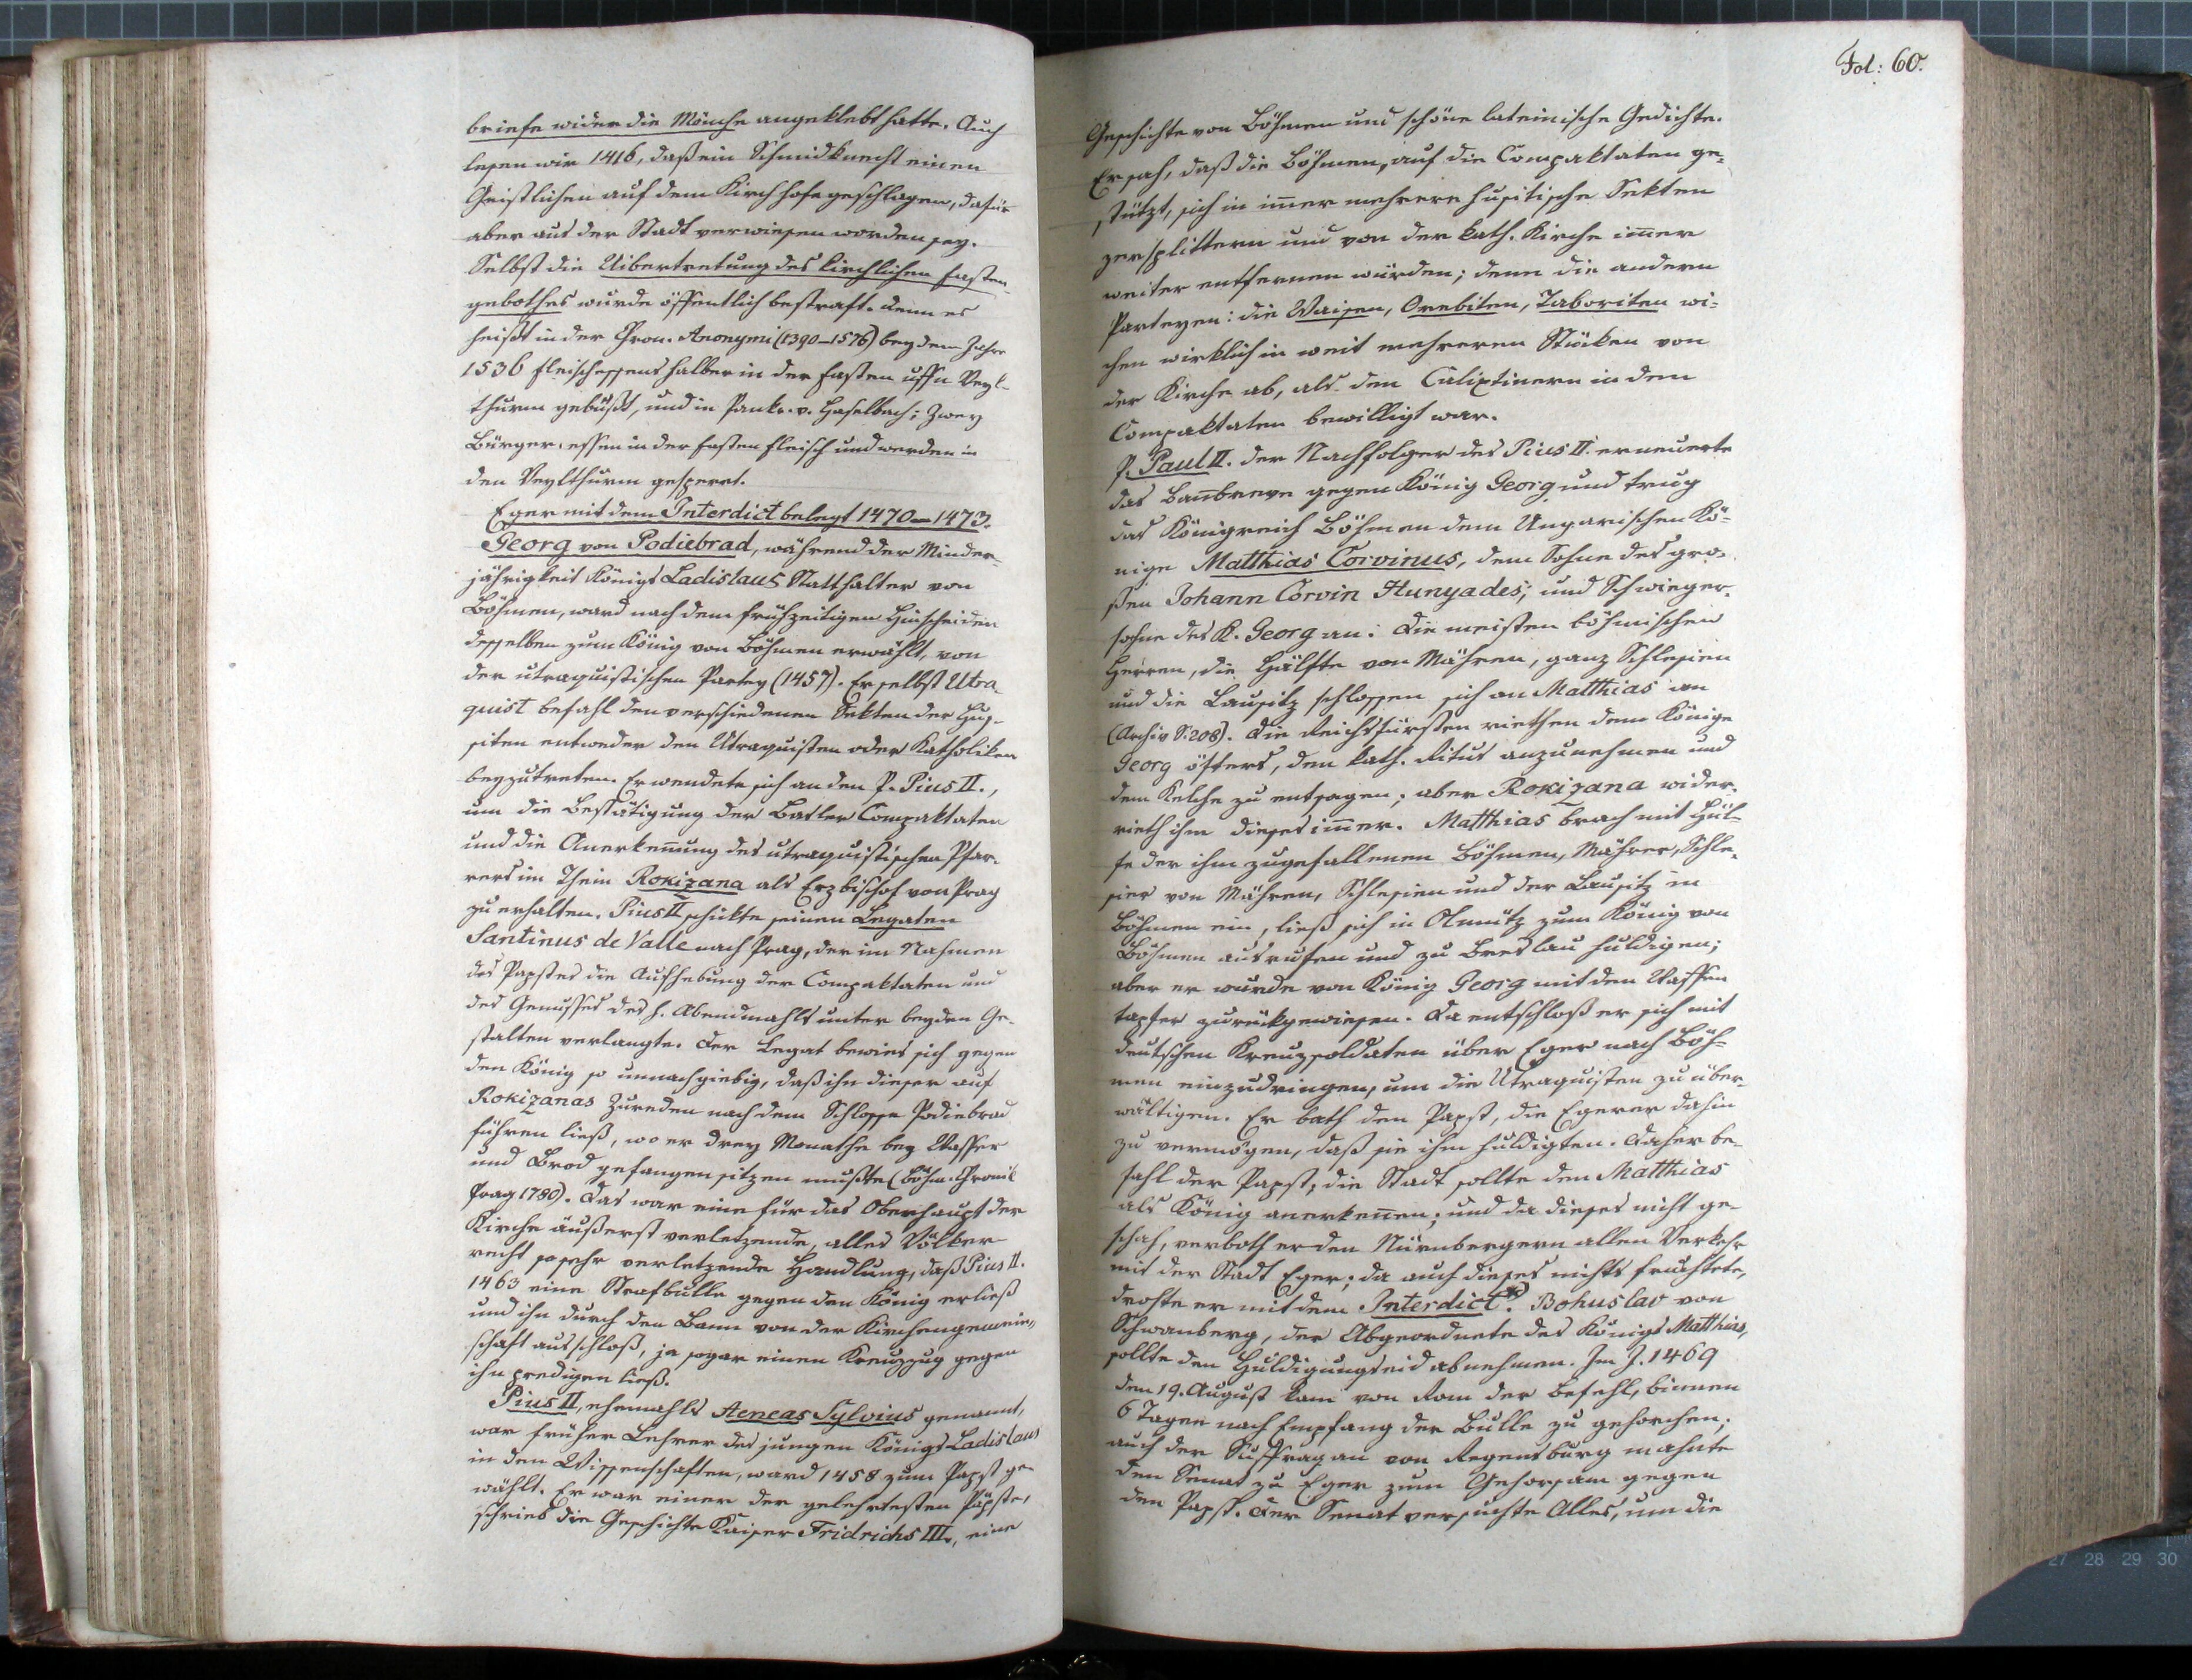 briefe wider die Mönche angeklebt hatte. Auch
lesen wir 1416, daß ein Schmidknecht einen
Geistlichen auf dem Kirchhofe geschlagen, dafür
aber aus der Stadt verwiesen worden sey.
Selbst die Uibertretung des kirchlichen Fasten-
gebothes wurde öffentlich bestraft. Denn es
heißt in der Chron. Anonymi (1390–1576) bey dem Jahre
1536 Fleischessens halber in der Fasten uffn
thurm gebüßt, und in Pank. v. Haselbach; Zwey
Bürger essen in der Fasten Fleisch und werden in
den gesperrt.
Eger mit dem Interdict belegt 1470–1473.
Georg von Podiebrad, während der Minder-
jährigkeit Königs Ladislaus Statthalter von
Böhmen, ward nach dem frühzeitigen Hinscheiden
desselben zum König von Böhmen erwählt, von
der utraquistischen Partey (1457). Er selbst Utra-
quist befahl den verschiedenen Sekten der Hus-
siten entweder den Utraquisten oder Katholiken
beyzutreten. Er wendete sich an den P. Pius II.,
um die Bestätigung der Basler Compaktaten
und die Anerkennung des utraquistischen Pfar-
rers im Thein Rokizana als Erzbischof von Prag
zu erhalten. Pius II schickte seinen Legaten
Santinus de Valle nach Prag, der im Nahmen
des Papstes die Aufhebung der Compaktaten und
des Genusses des h. Abendmahls unter beyden Ge-
stalten verlangte. Der Legat bewies sich gegen
den König so unnachgiebig, daß ihn dieser auf
Rokizanas Zureden nach dem Schlosse Podiebrad
führen ließ, wo er drey Monathe bey Wasser
und Brod gefangen sitzen mußte (böhm. Chronik
Prag 1780). Das war eine für das Oberhaupt der
Kirche äußerst verletzende, alles Völker
recht so sehr verletzende Handlung, daß Pius II.
1463 eine Strafbulle gegen den König erließ
und ihn durch den Bann von der Kirchengemein-
schaft ausschloß, ja sogar einen Kreuzzug gegen
ihn predigen ließ.
Pius II, ehemahls Aeneas Sylvius genannt,
war früher Lehrer des jungen Königs Ladislaus
in den Wissenschaften, ward 1458 zum Papst ge-
wählt. Er war einer der gelehrtesten Päpste,
schrieb die Geschichte Kaiser Fridrichs III., eine
Fol: 60.
Geschichte von Böhmen und schöne lateinische Gedichte.
Er sah, daß die Böhmen, auf die Compaktaten ge-
stützt, sich in immer mehrere husitische Sekten
zersplittern und von der kath. Kirche immer
weiter entfernen würden; denn die andern
Parteyen: die Waisen, Orebiten, Taboriten wi-
chen wirklich in weit mehreren Stücken von
der Kirche ab, als den Calixtinern in dem
Compaktaten bewilligt war.
P. Paul II. der Nachfolger des Pius II. erneuerte
das Bannbreve gegen König Georg und trug
das Königreich Böhmen dem Ungarischen Kö-
nige Matthias Corvinus, dem Sohne des gro-
ßen Johann Corvin Hunyades, und Schwieger-
sohne des K. Georg an. Die meisten böhmischen
Herren, die Hälfte von Mähren, ganz Schlesien
und die Lausitz schlossen sich an Matthias an
(Archiv S. 208). Die Reichsfürsten riethen dem Könige
Georg öfters, den kath. Ritus anzunehmen und
dem Kelche zu entsagen; aber Rokizana wider-
rieth ihm dieses immer. Matthias brach mit Hül-
fe der ihm zugefallenen Böhmen, Mährer, Schle-
sier von Mähren, Schlesien und der Lausitz in
Böhmen ein, ließ sich in Olmütz zum König von
Böhmen ausrufen und zu Breslau huldigen;
aber er wurde von König Georg mit den Waffen
tapfer zurückgewiesen. Da entschloß er sich mit
deutschen Kreuzsoldaten über Eger nach Böh-
men einzudringen, um die Utraquisten zu über-
wältigen. Er bath den Papst, die Egerer dahin
zu vermögen, daß sie ihm huldigten. Daher be-
fahl der Papst, die Stadt sollte den Matthias
als König anerkennen; und da dieses nicht ge-
schah, verboth er den Nürnbergern allen Verkehr
mit der Stadt Eger; da auch dieses nichts fruchtete,
drohte er mit dem Interdict. *) Bohuslav von
Schwanberg, der Abgeordnete des Königs Matthias,
sollte den Huldigungseid abnehmen. Im J. 1469
den 19. August kam von Rom der Befehl, binnen
6 Tagen nach Empfang der Bulle zu gehorchen;
auch der Suffragan von Regensburg mahnte
den Senat zu Eger zum Gehorsam gegen
den Papst. Der Senat versuchte Alles, um die